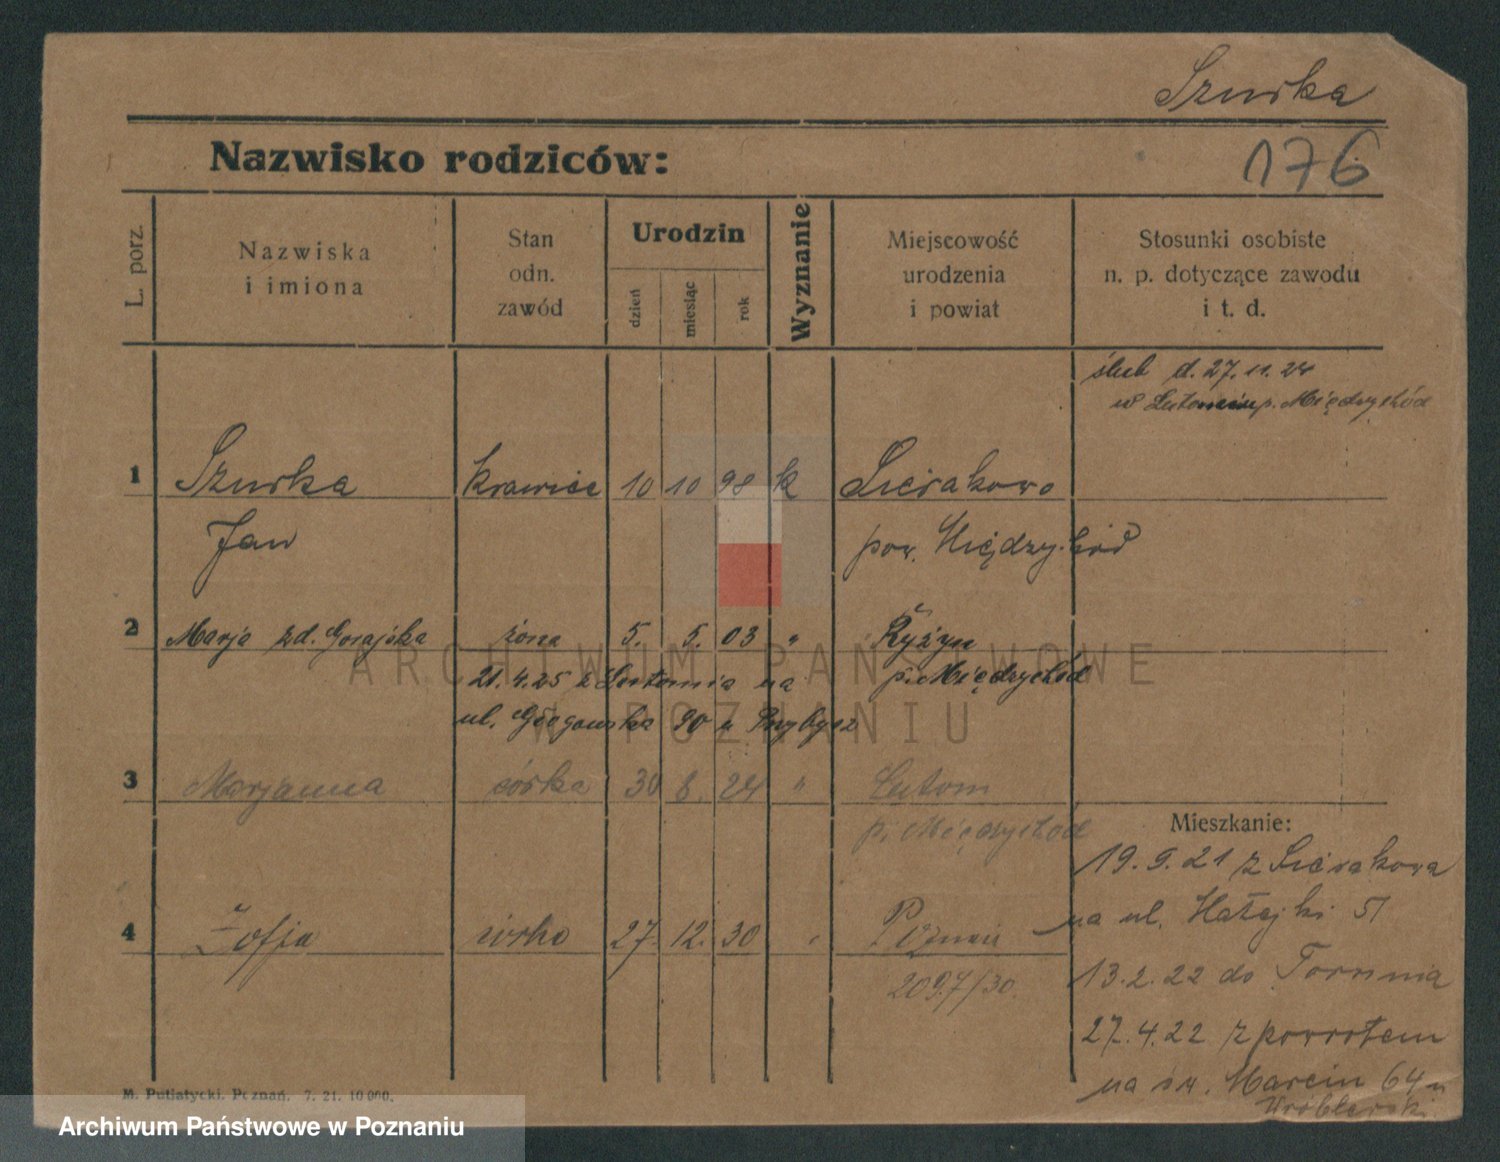 Szurka
176
Nazwisko rodziców:
L. porz.
Nazwiska
i imiona
Stan
odn.
zawód
Urodzin
dzień
miesiąc
rok
Wyznanie
Miejscowość
urodzenia
i powiat
Stosunki osobiste
n. p. dotyczące zawodu
i t. d.
ślub d. 27.11.24
w p. Międzychód
1 Szurka krawiec 10 10 98 k Sierakowo
Jan pow. Międzychód
2 Marja zd. Gorajska żona 5. 5. 03 " Ryżyn
21.4.25 z Lutomia na p. Międzychód
ul. Głogowska 90 u Przybysz
3 Marjanna córka 30 8. 24 " Lutom
p. Międzychód
4 Zofja córka 27. 12. 30 Poznań
2097/30.
Mieszkanie:
19.9.21 z Sierakowa
na ul. Matejki 51
13.2.22 do Torunia
27.4.22 z powrotem
na św. Marcin 64 u
M. Putiatycki, Poznań. 7. 21. 10 000.
ARCHIWUM PAŃSTWOWE
W POZNANIU
Archiwum Państwowe w Poznaniu